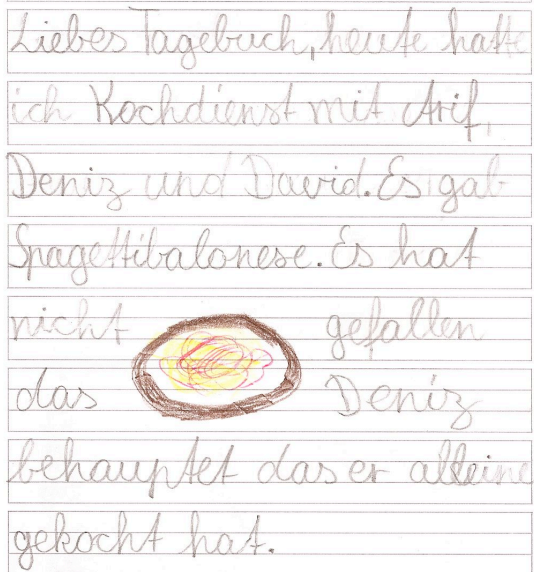 Liebes Tagebuch, heute hatte
ich Kochdienst mit Arif,
Deniz und David. Es gab
Spagettibalonese. Es hat
nicht gefallen
das Deniz
behauptet das er alleine
gekocht hat.